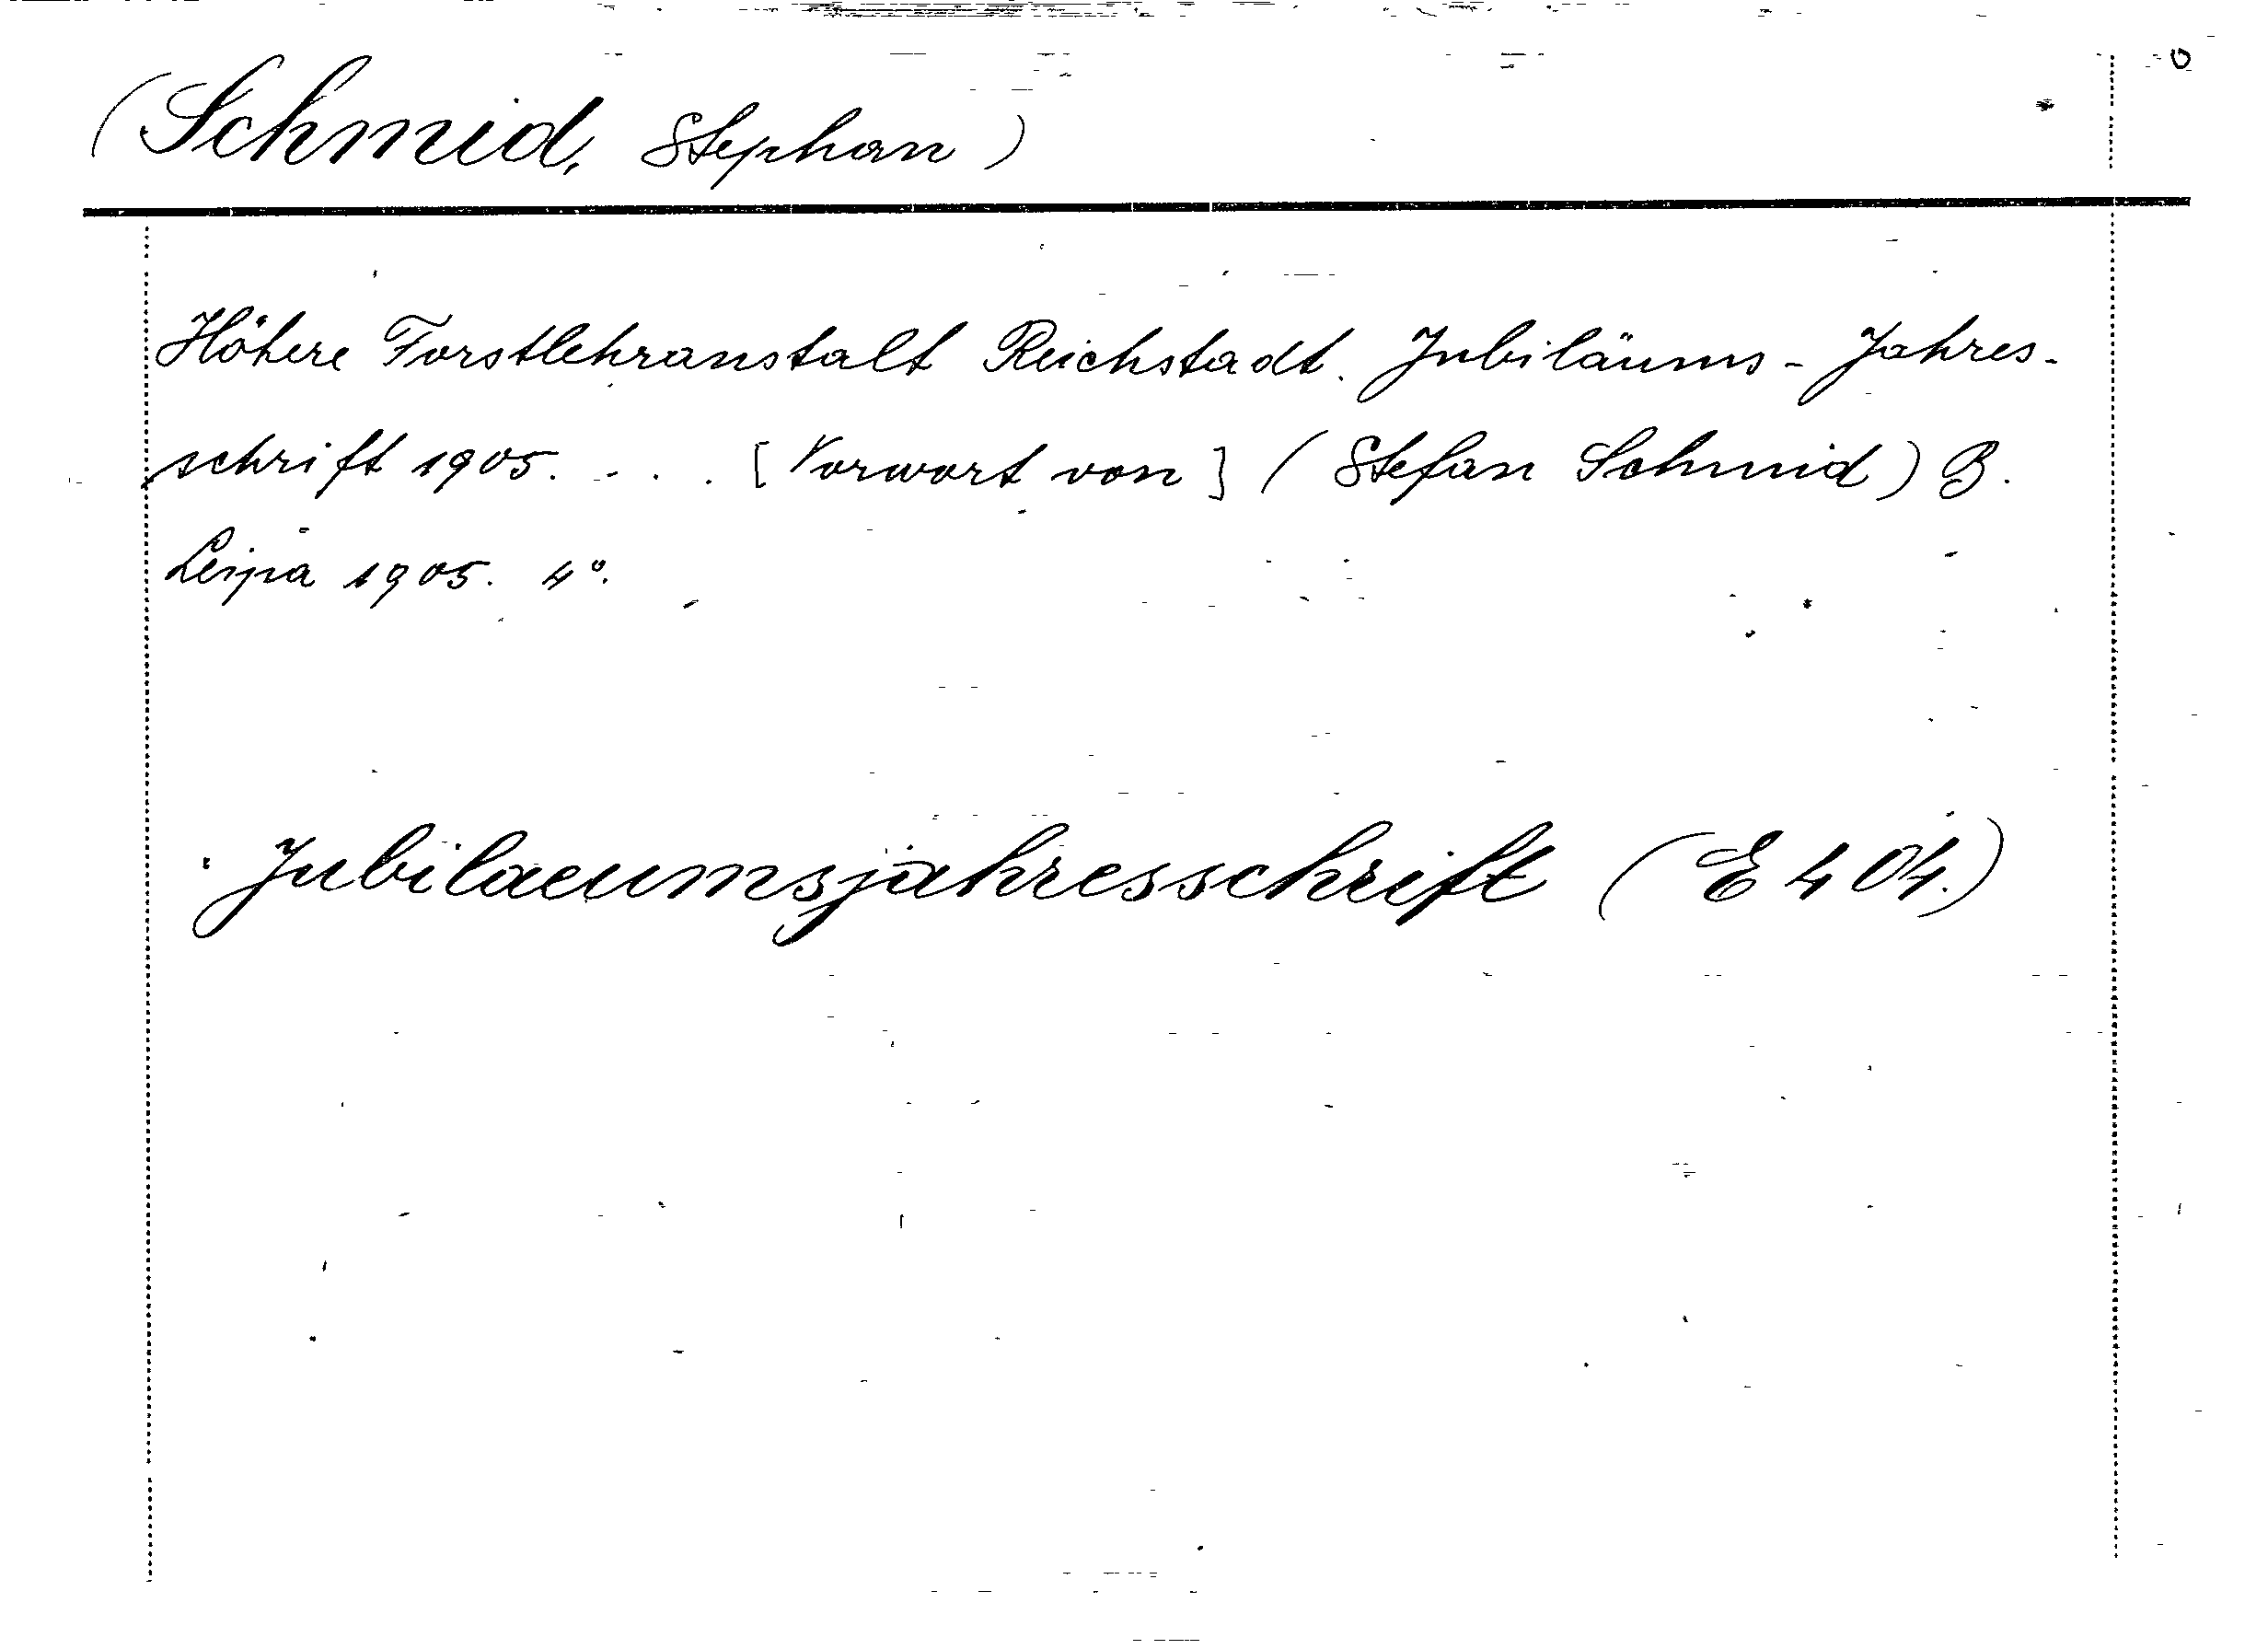 (Schmid, Stephan)
Höhere Forstlehranstalt Reichstadt. Jubiläums-Jahres-
schrift 1905. ... [Vorwort von] (Stefan Schmid) B.
Leipa 1905. 4°.
Jubilaeumsjahresschrift (E 404.)